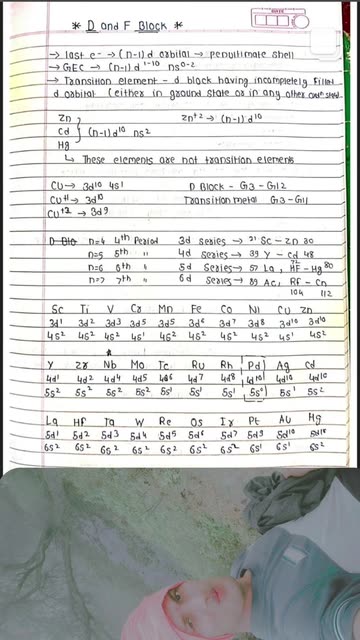 * D and F Block *
→ last e- → (n-1)d orbital → penultimate shell
→ GEC → (n-1)d¹⁻¹⁰ ns⁰⁻²
→ Transition element - d block having incompletely filled
d orbital (either in ground state or in any other state)
Zn
Cd } (n-1)d¹⁰ ns²
Hg
Zn⁺² → (n-1)d¹⁰
↳ These elements are not transition elements
CU → 3d¹⁰ 4s¹ D Block - G3 - G12
CU⁺¹ → 3d¹⁰ Transition metal G3 - G11
CU⁺² → 3d⁹
n=4 4th Period 3d series → 21 Sc - Zn 30
n=5 5th " 4d series → 39 Y - Cd 48
n=6 6th " 5d series → 57 La, 72 HF - Hg 80
n=7 7th " 6d series → 89 AC, Rf - Cn
104 112
Sc Ti V Cr Mn Fe Co Ni CU Zn
3d¹ 3d² 3d³ 3d⁵ 3d⁵ 3d⁶ 3d⁷ 3d⁸ 3d¹⁰ 3d¹⁰
4s² 4s² 4s² 4s¹ 4s² 4s² 4s² 4s² 4s¹ 4s²
Y Zr Nb Mo Tc Ru Rh Pd Ag Cd
4d¹ 4d² 4d⁴ 4d⁵ 4d⁶ 4d⁷ 4d⁸ 4d¹⁰ 4d¹⁰ 4d¹⁰
5s² 5s² 5s¹ 5s¹ 5s¹ 5s¹ 5s¹ 5s⁰ 5s¹ 5s²
La Hf Ta W Re Os Ir Pt AU Hg
5d¹ 5d² 5d³ 5d⁴ 5d⁵ 5d⁶ 5d⁷ 5d⁹ 5d¹⁰ 5d¹⁰
6s² 6s² 6s² 6s² 6s² 6s² 6s² 6s¹ 6s¹ 6s²